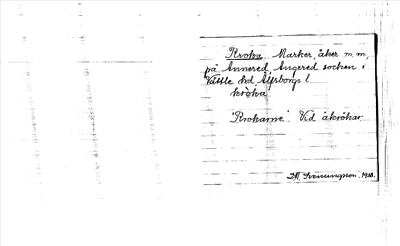 Kroka Marker åker m.m,
på Annered Angered socken i
Vättle hd Älfsborgs l.
kròka
"Krokarne" Vid åkrökar.
Svenungson. 1910.